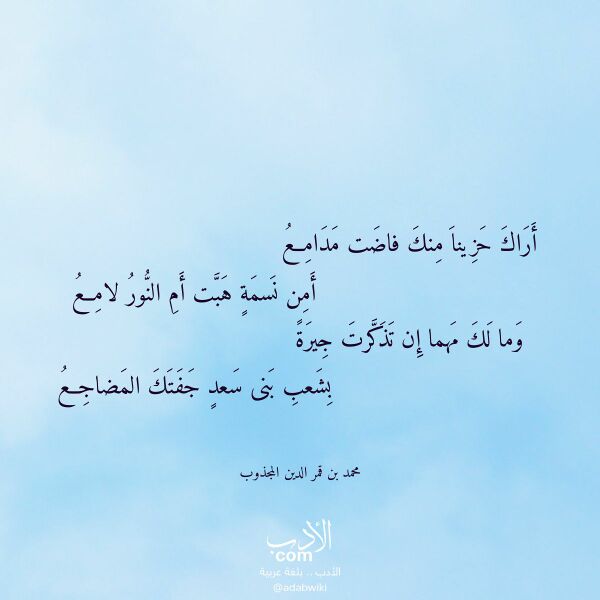 أَرَاكَ حَزِيناَ مِنكَ فاضَت مَدَامِعُ
أَمِن نَسمَةٍ هَبَّت أَمِ النُّورُ لامِعُ
وَما لَكَ مَهما إِن تَذَكَّرتَ جِيرَةً
بِشَعبِ بَنى سَعدٍ جَفَتَكَ المَضاجِعُ
محمد بن قمر الدين المجذوب
الأدب
com
الأدب .. بلغة عربية
@adabwiki